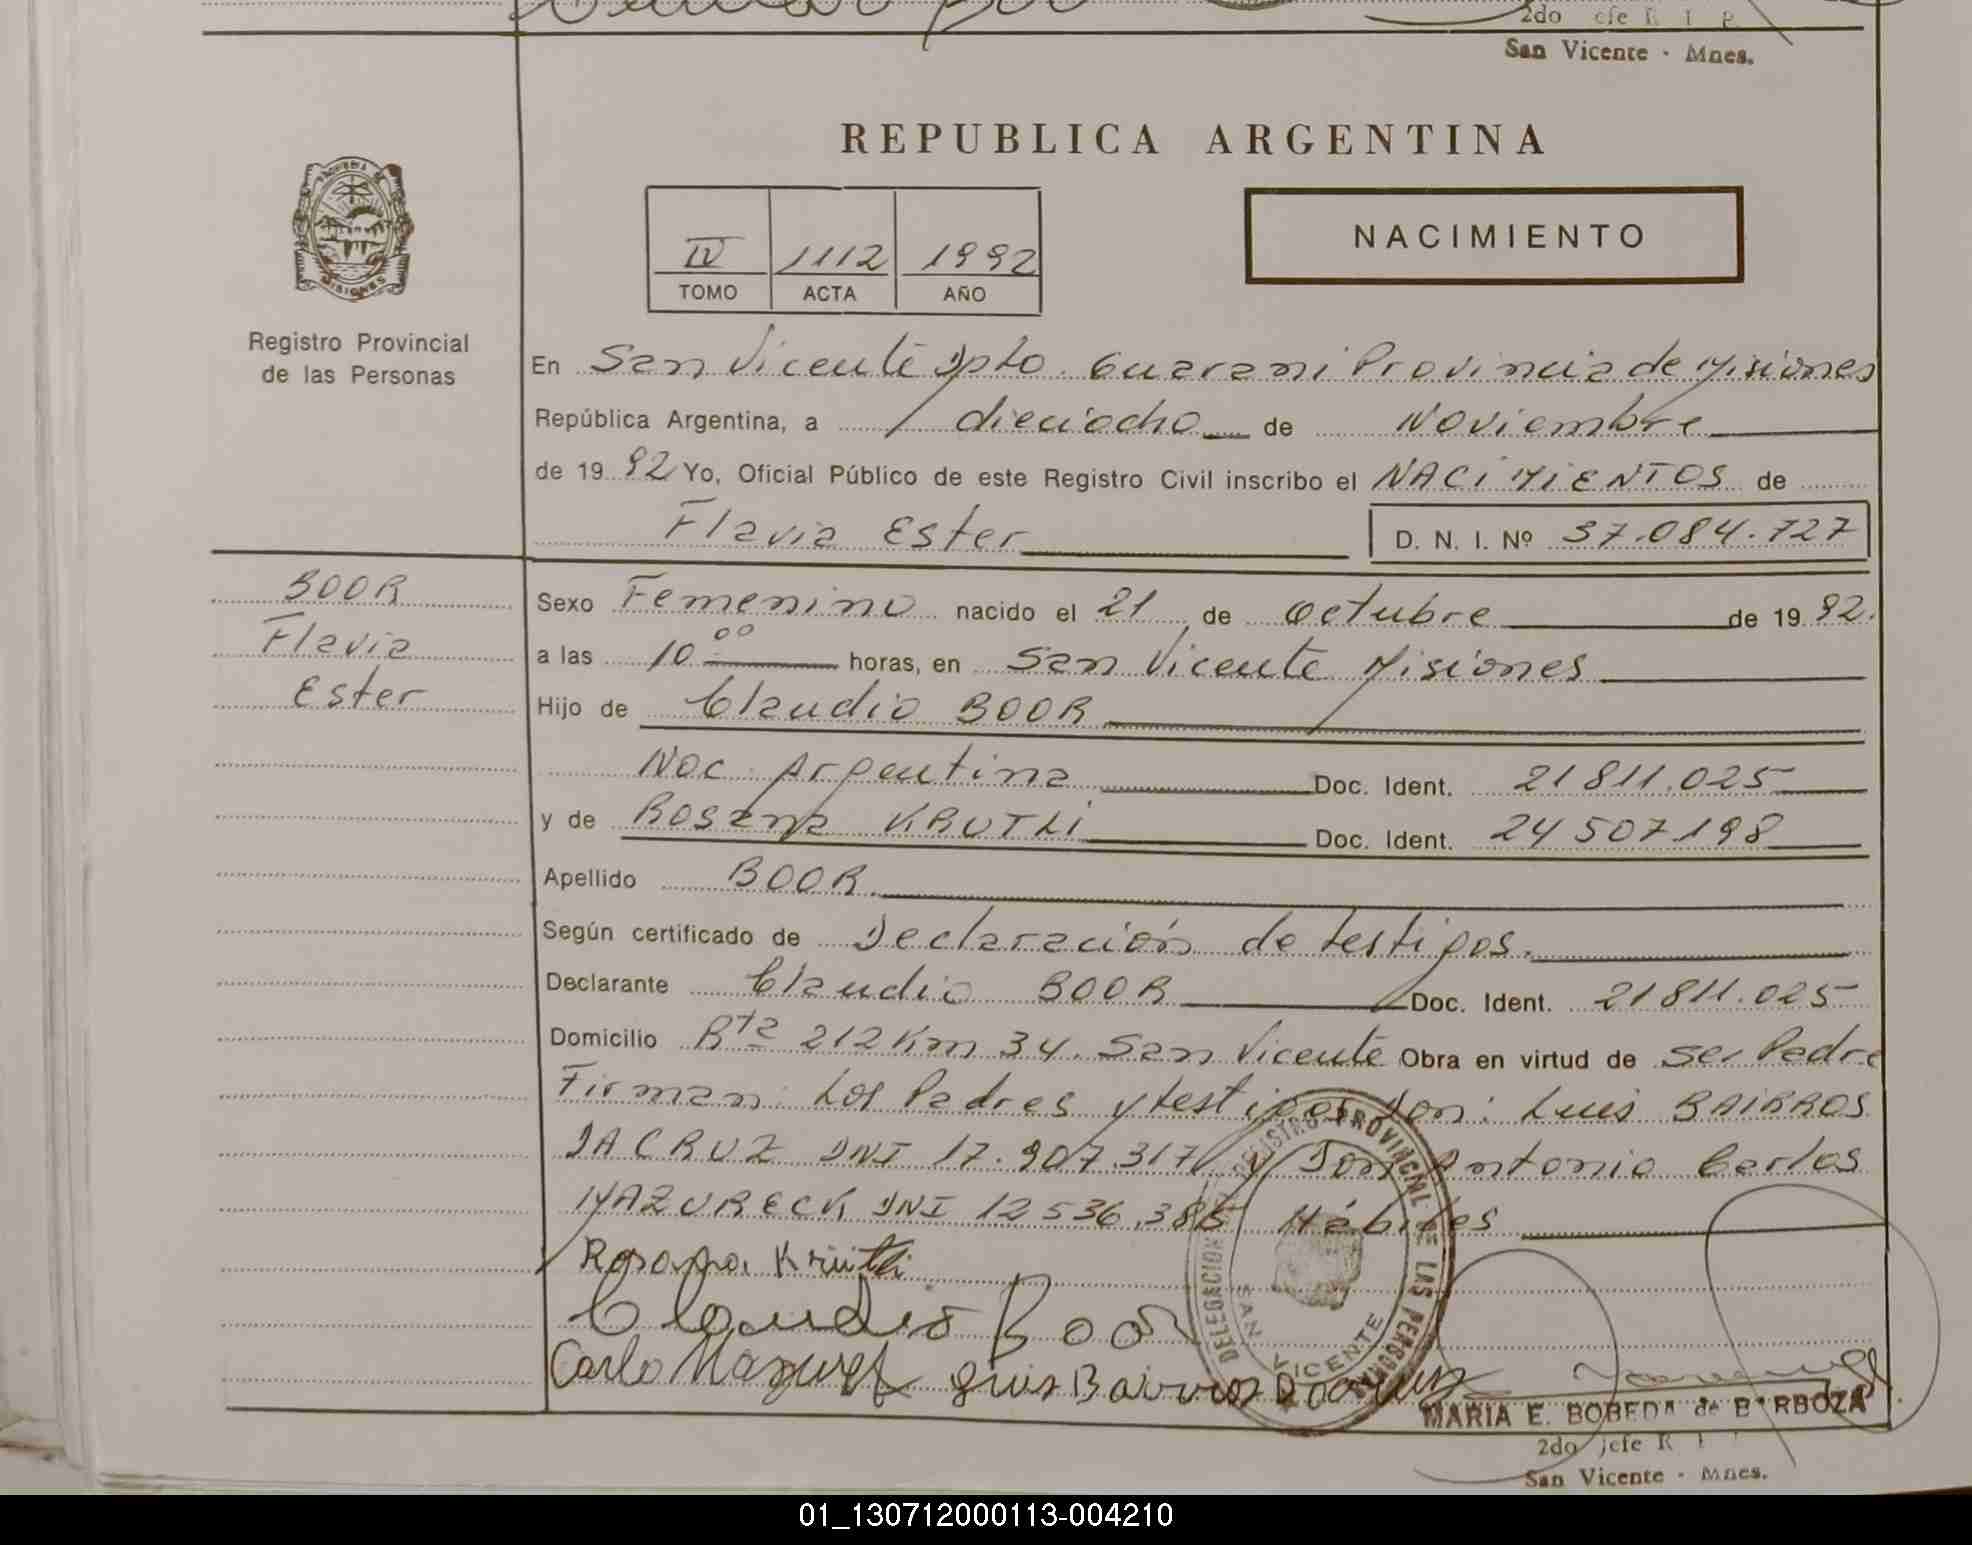 2do Jefe R. I. P.
San Vicente - Mnes.
REPUBLICA ARGENTINA
IV 1112 1992
TOMO ACTA AÑO
NACIMIENTO
PROVINCIA DE
MISIONES
Registro Provincial
de las Personas
En San Vicente Dpto. Guarani Provincia de Misiones
República Argentina, a dieciocho de Noviembre
de 1992 Yo, Oficial Público de este Registro Civil inscribo el NACIMIENTOS de
Flavia Ester D. N. I. Nº 37.084.727
BOOR
Flavia
Ester
Sexo Femenino nacido el 21 de Octubre de 1992.
a las 10 00 horas, en San Vicente Misiones
Hijo de Claudio BOOR
Nac. Argentina Doc. Ident. 21811.025
y de Rosana KRUTLI Doc. Ident. 24507198
Apellido BOOR
Según certificado de Declaración de testigos.
Declarante Claudio BOOR Doc. Ident. 21811.025
Domicilio Rta 212 Km 34. San Vicente Obra en virtud de ser Padre
Firman: Los Padres y testigos Don: Luis BAIRROS
DA CRUZ DNI 17.907.317 y Don Antonio Carlos
MAZURECK DNI 12536.385 Hábiles
Rosana Krütli
Claudio Boor
Carlo Luis Bairros Da Cruz
DELEGACION DEL REGISTRO PROVINCIAL DE LAS PERSONAS
SAN VICENTE
MARIA E. BOBEDA de BARBOZA
2do Jefe R. I.
San Vicente - Mnes.
01_130712000113-004210